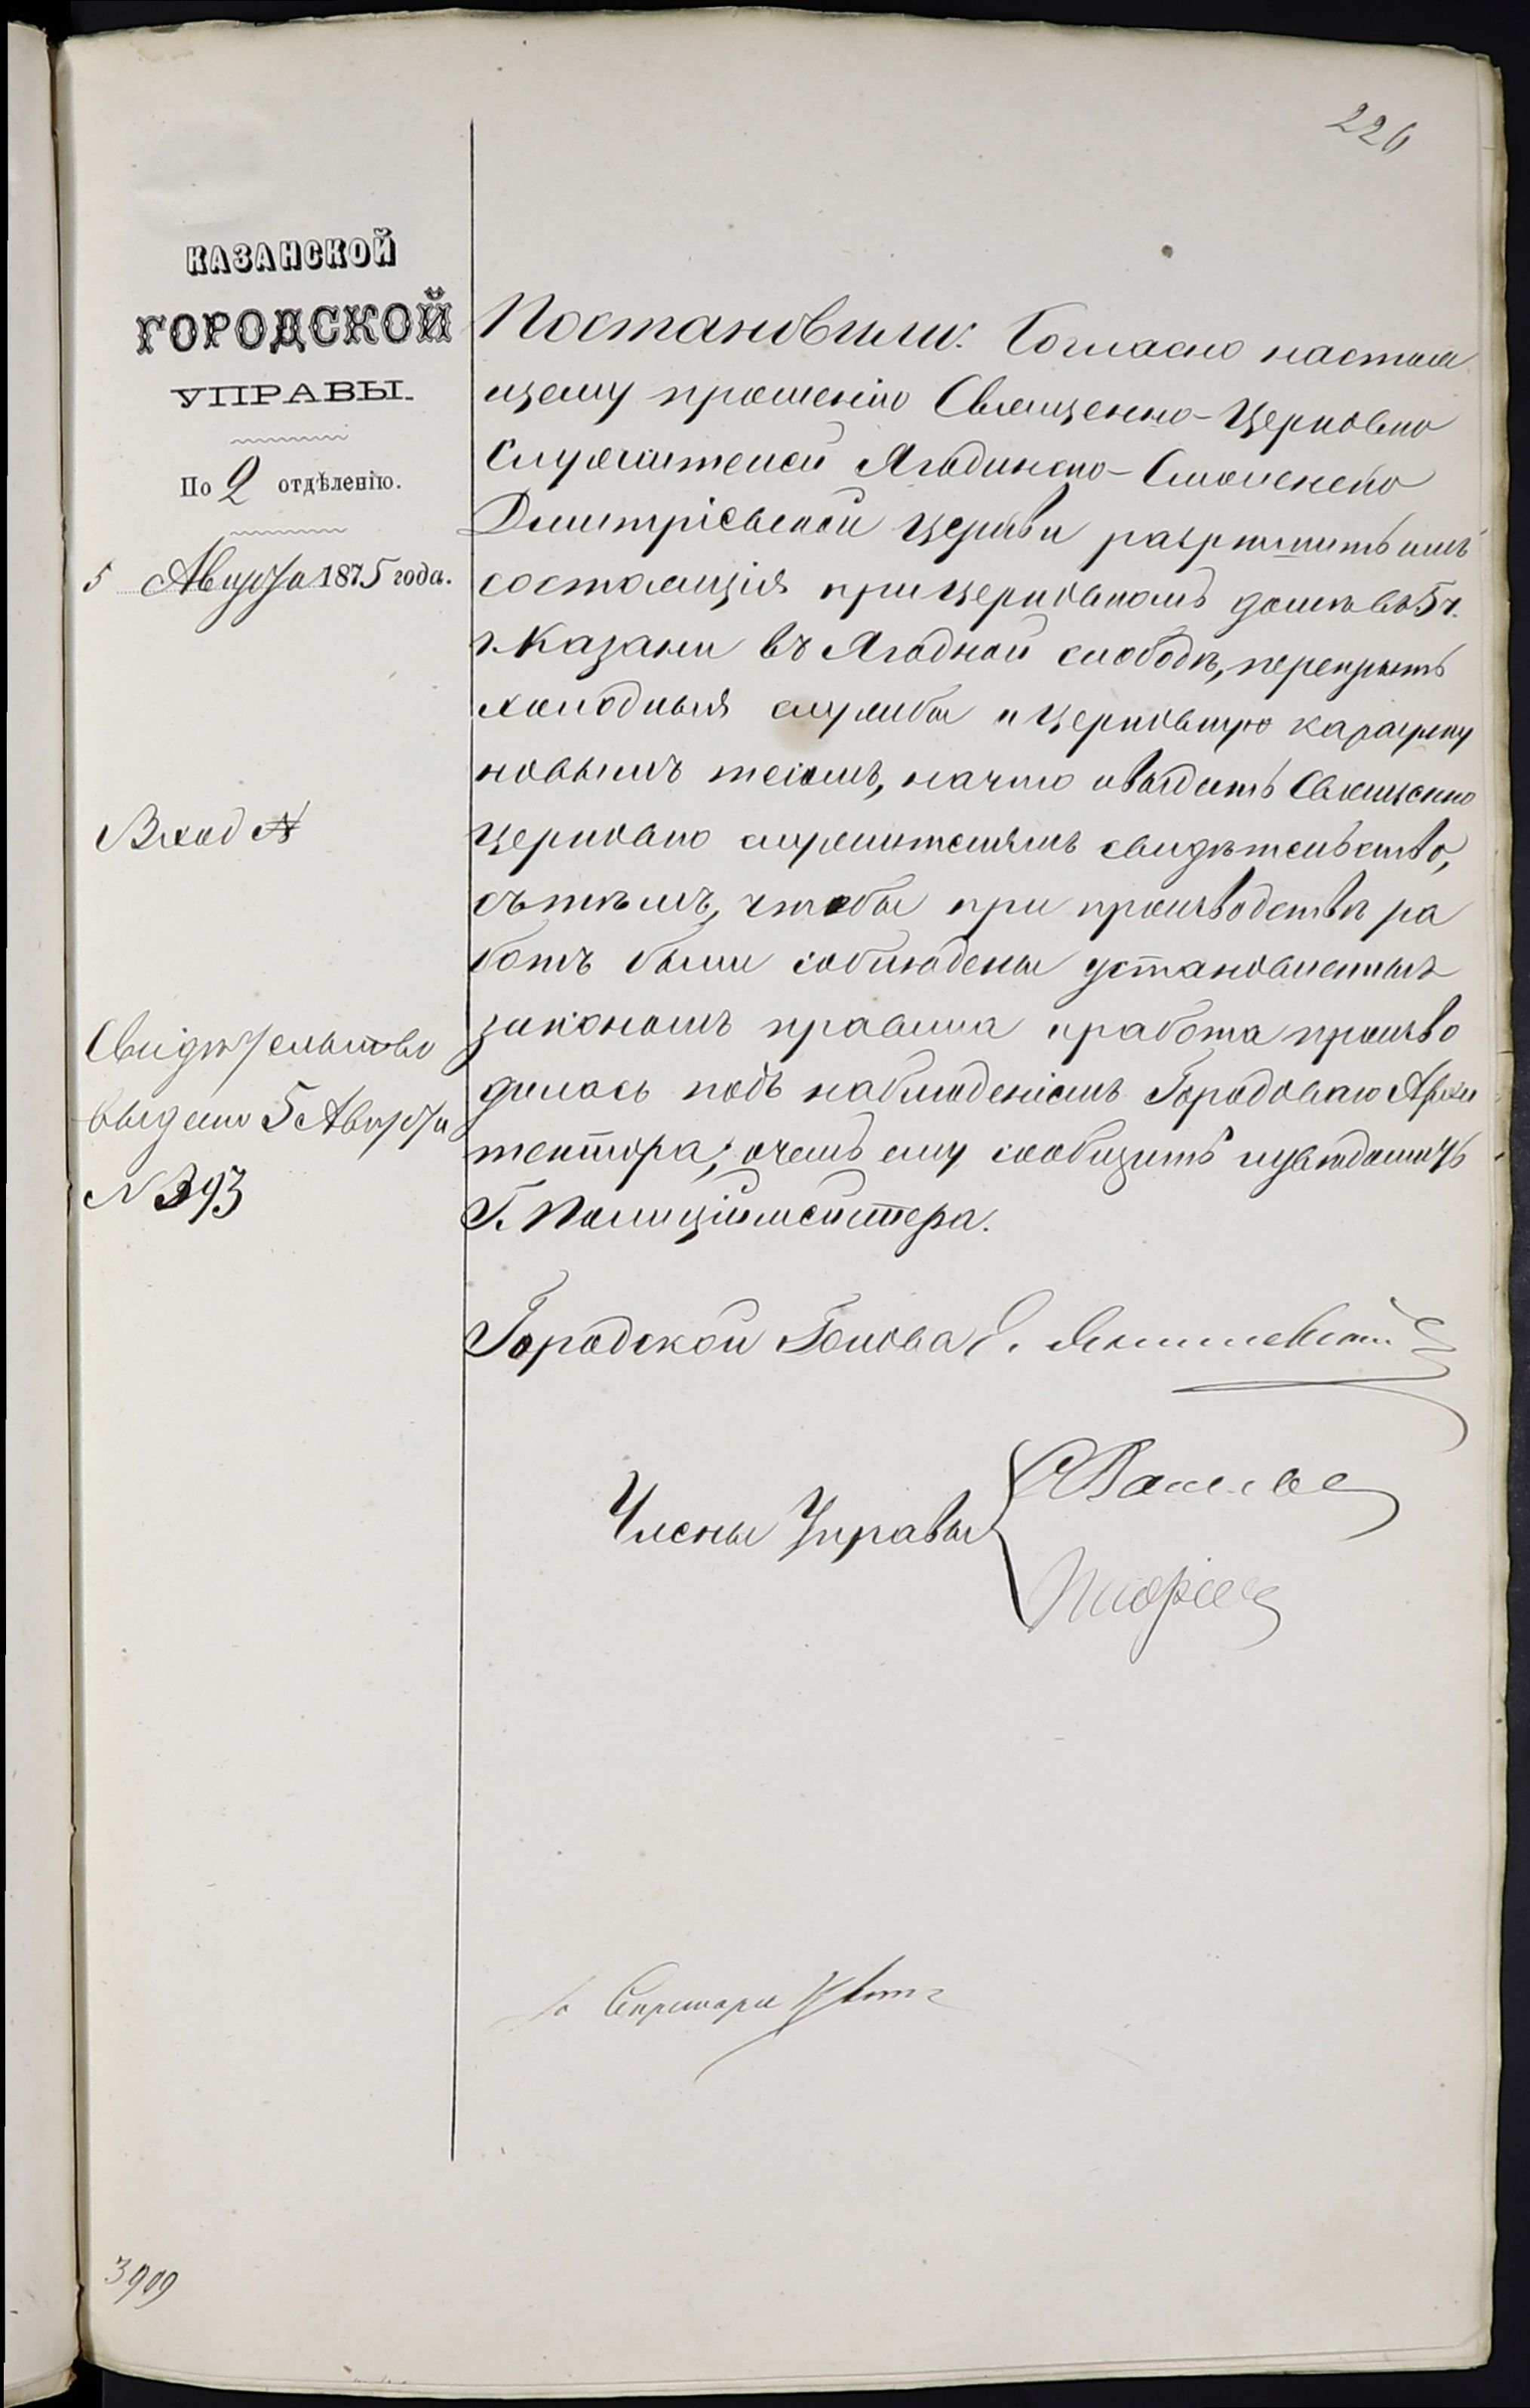 226
КАЗАНСКОЙ
ГОРОДСКОЙ
УПРАВЫ.
По 2 отдѣленію.
5 Августа 1875 года.
Вход №
Свидѣтельство
выдано 5 Августа
№ 393
Постановили: Согласно настоя
щему прошенію Священно-Церковно
Служителей Ягодинско-Смоленско
Димитріевской Церкви разрѣшить имъ
состоящія при церковномъ домѣ въ 5 ч.
г. Казани въ Ягодной слободѣ, перекрыть
холодныя службы и церковную караулку
новымъ тесомъ, на что и выдать Священно
Церковно служителямъ свидѣтельство,
съ тѣмъ, чтобы при производствѣ ра
ботъ были соблюдены установленныя
закономъ правила и работа произво
дилась подъ наблюденіемъ Городоваго Архи
тектора; о чемъ ему сообщить и увѣдомить
Г. Полиціймейстера.
Городской Голова Э. Янишевскій
Члены Управы
Секретаря
3909